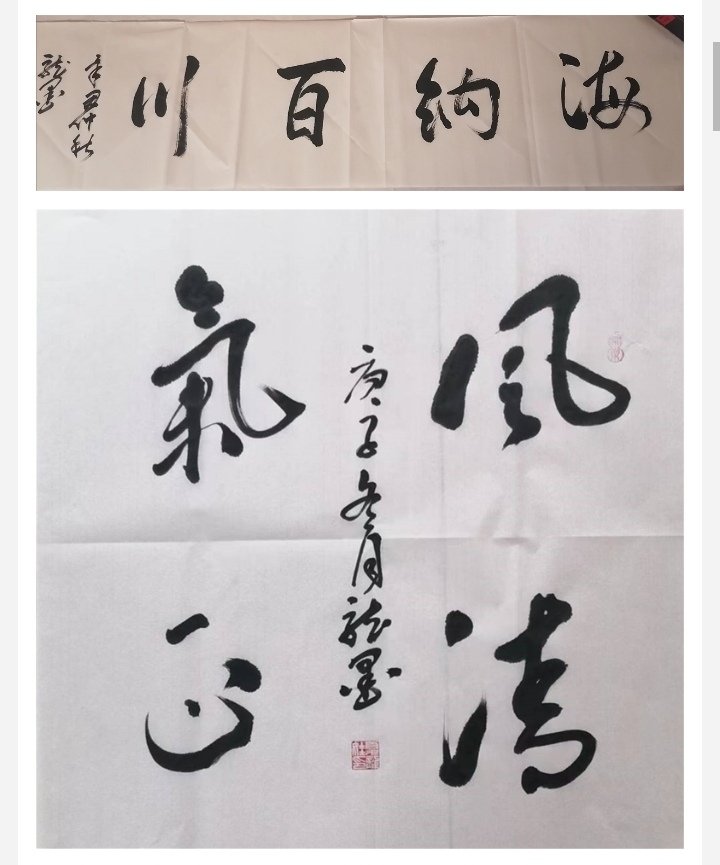 海纳百川
辛丑仲秋
龙墨
风清
庚子冬月龙墨
氣正